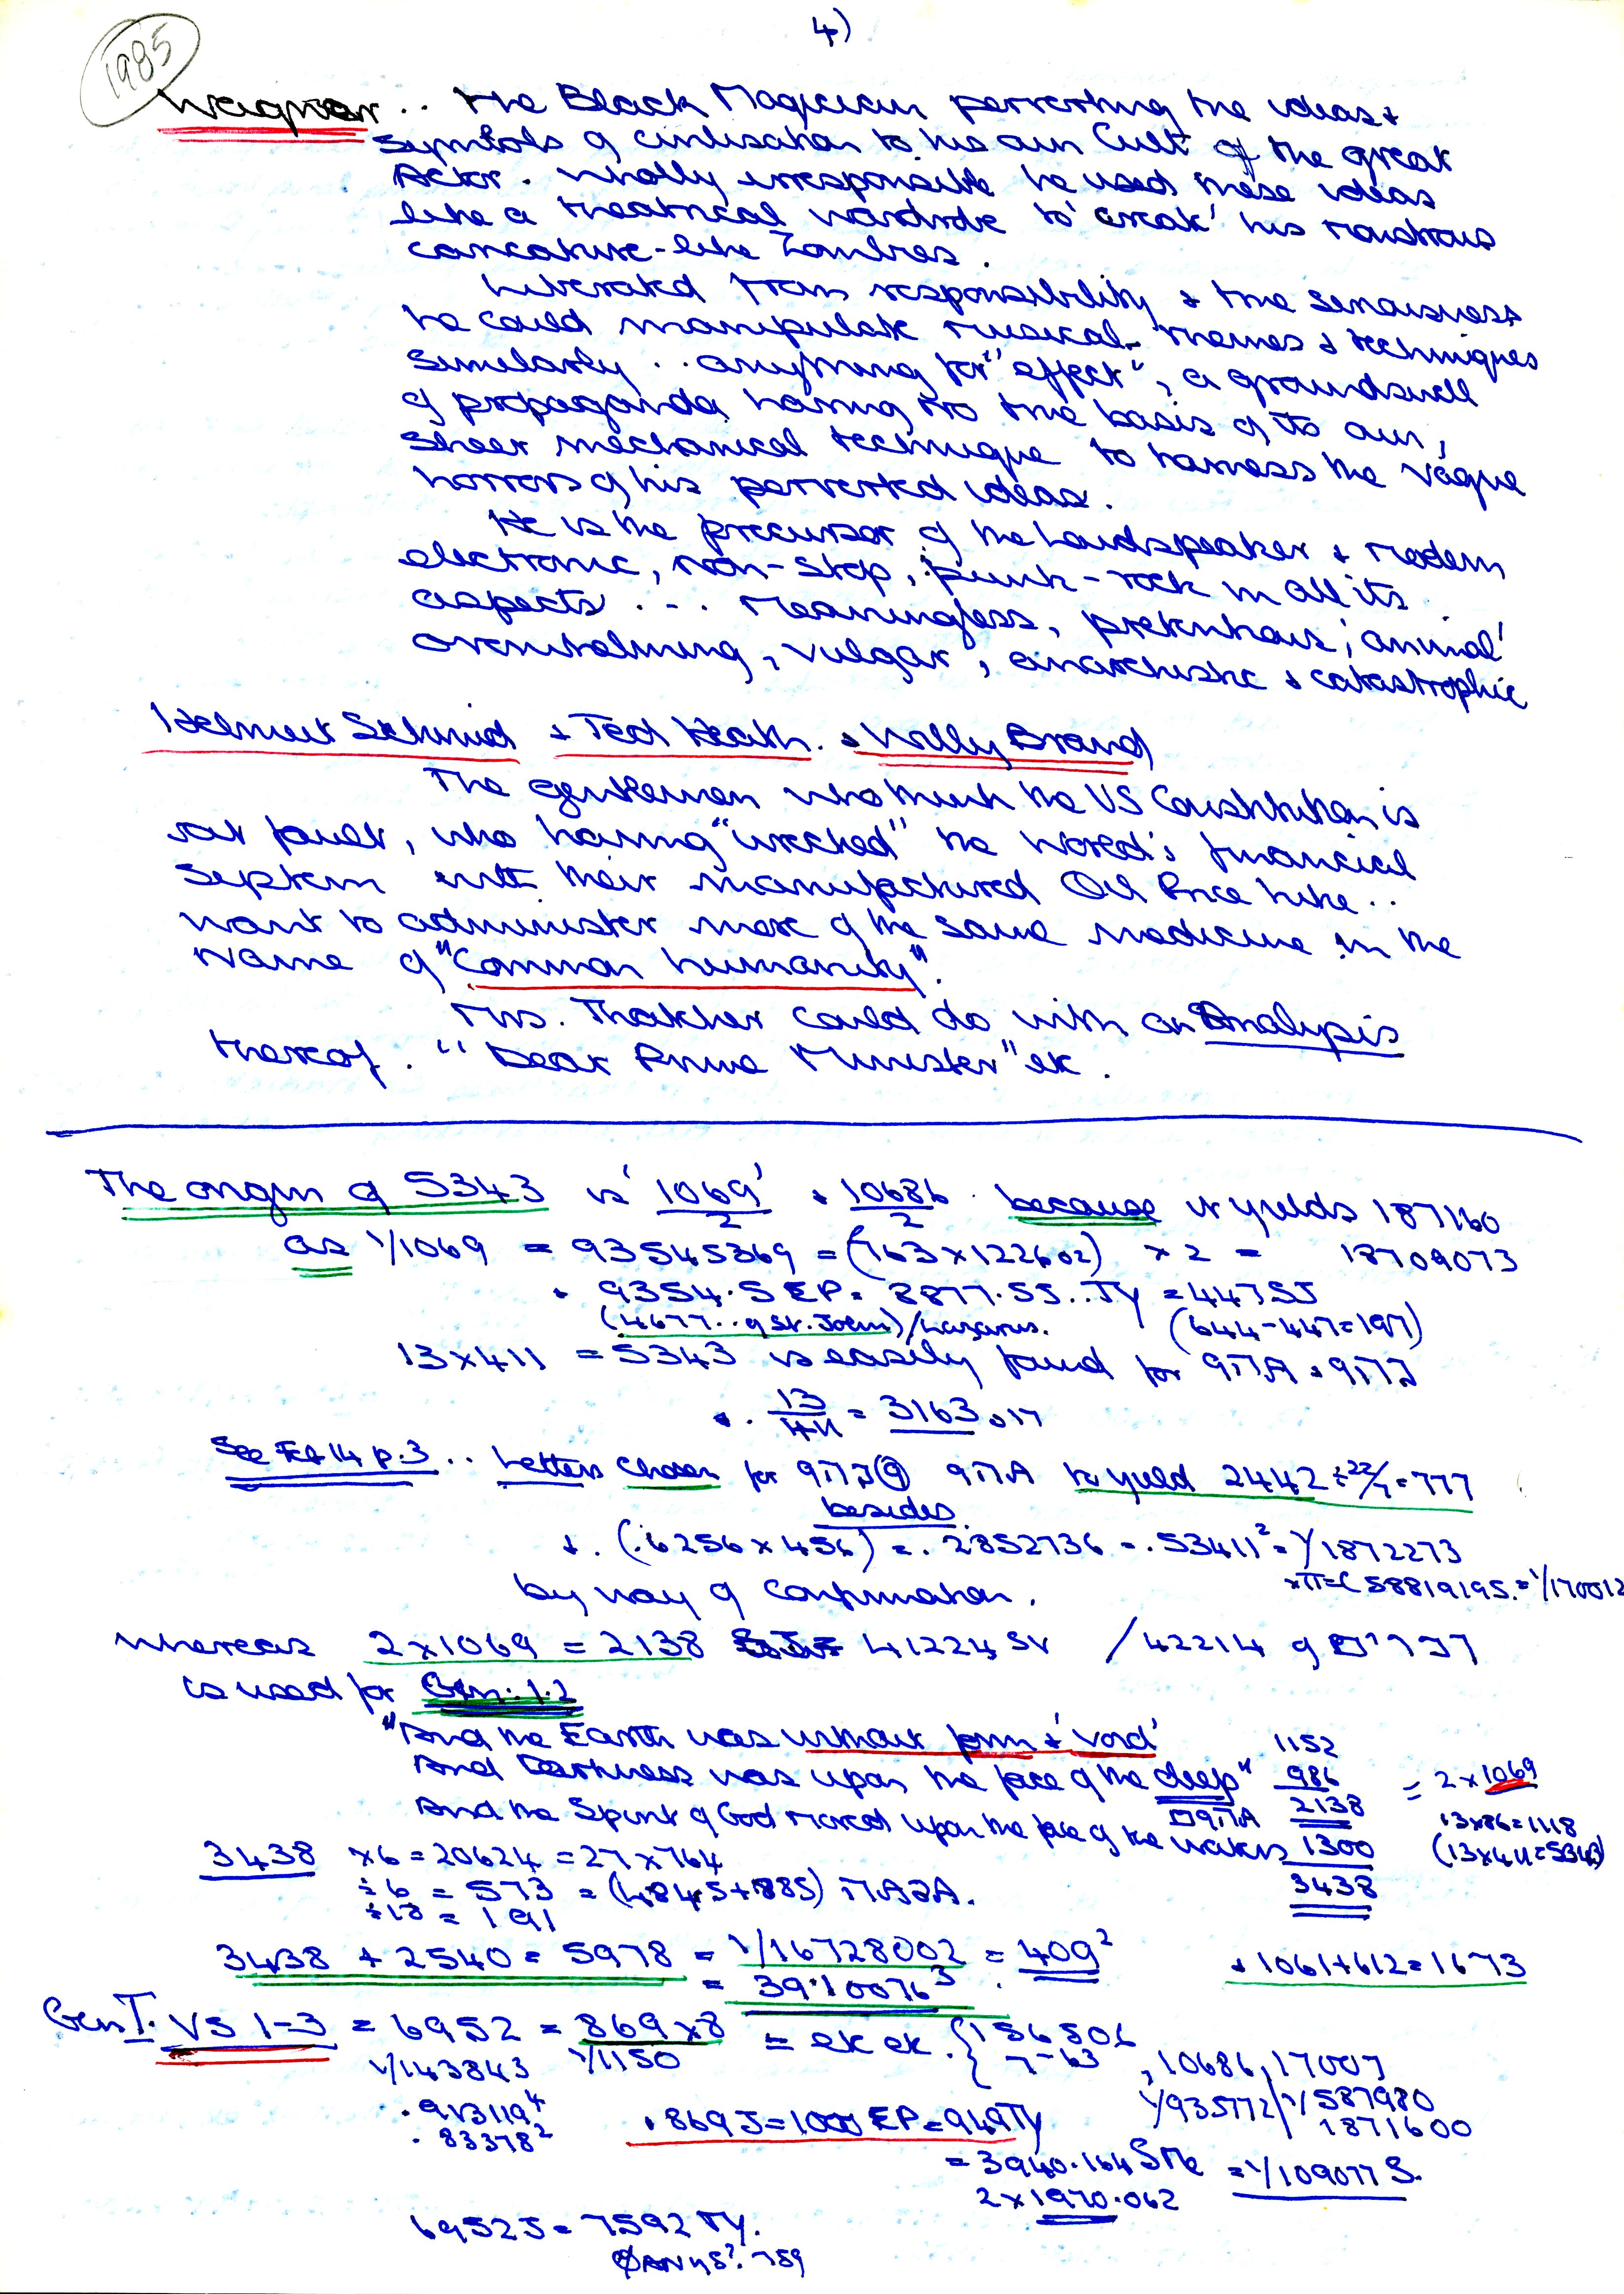 4)
1985
Wagner .. The Black Magician perverting the ideas +
symbols of civilisation to his own Cult of the great
Actor. Wholly irresponsible he used these ideas
like a theatrical wardrobe to 'creat' his monstrous
caricature-like Zombies.
Liberated from responsibility + true seriousness
he could manipulate musical themes + techniques
similarly .. anything for "effect", a groundswell
of propaganda having no true basis of its own,
sheer mechanical technique to harness the vague
horrors of his perverted ideas.
He is the precursor of the Loudspeaker + modern
electronic, non-stop, punk-rock in all its
aspects ... meaningless, pretentious, 'animal'
overwhelming, vulgar, anarchistic + catastrophic
Helmut Schmid + Ted Heath + Willy Brand
The gentlemen who think the US Constitution is
at fault, who having "wrecked" the World's financial
System with their manufactured Oil Price hike ..
want to administer more of the same medicine in the
name of "Common humanity".
Mrs. Thatcher could do with an Analysis
thereof. "Dear Prime Minister" etc.
The origin of 5343 is '1069'/2 + 10686/2 because it yields 187160
as 1/1069 = 93545369 = (763 x 122602) x 2 = 18709073
+ 9354.5 EP = 8877.55.. TY = 4475J
(4677.. of St. John)/Lazarus. (644-447=197)
13 x 411 = 5343 is easily found for 9ΠA + 9ΠJ
+ . 13/411 = 3163.017
See Fd 14 p.3 .. Letters chosen for 9ΠJ@ 9ΠA to yield 2442 ÷ 22/7 = 777
besides
+ . (.6256 x 456) = .2852736 = .53411² = 1/1872273
by way of confirmation. xπ = (58819195. = 1/170012
whereas 2 x 1069 = 2138 41224 SV / 42214 of
is used for Gen. 1.2
"And the Earth was without form + 'void' 1152
And Darkness was upon the face of the deep" 986 = 2 x 1069
2138 13x86=1118
And the Spirit of God moved upon the face of the waters 1300 (13x411=5343)
3438 x6 = 20624 = 27 x 764 3438
÷6 = 573 = (4845+885)
÷18 = 191
3438 + 2540 = 5978 = 1/16728002 = 409² + 1061+612=1673
= 39.10076³
Gen I. VS 1-3 = 6952 = 869 x 8 = etc etc. { 156506
1/143843 1/1150 7-63 , 10686, 17007
.913119⁴ 1/935772 / 1/587980
.83378² .869 J = 1000 EP = 949 TY 1871600
= 3940.164 SMe = 1/109077 S.
2 x 1970.062
6952 J = 7592 TY.
759